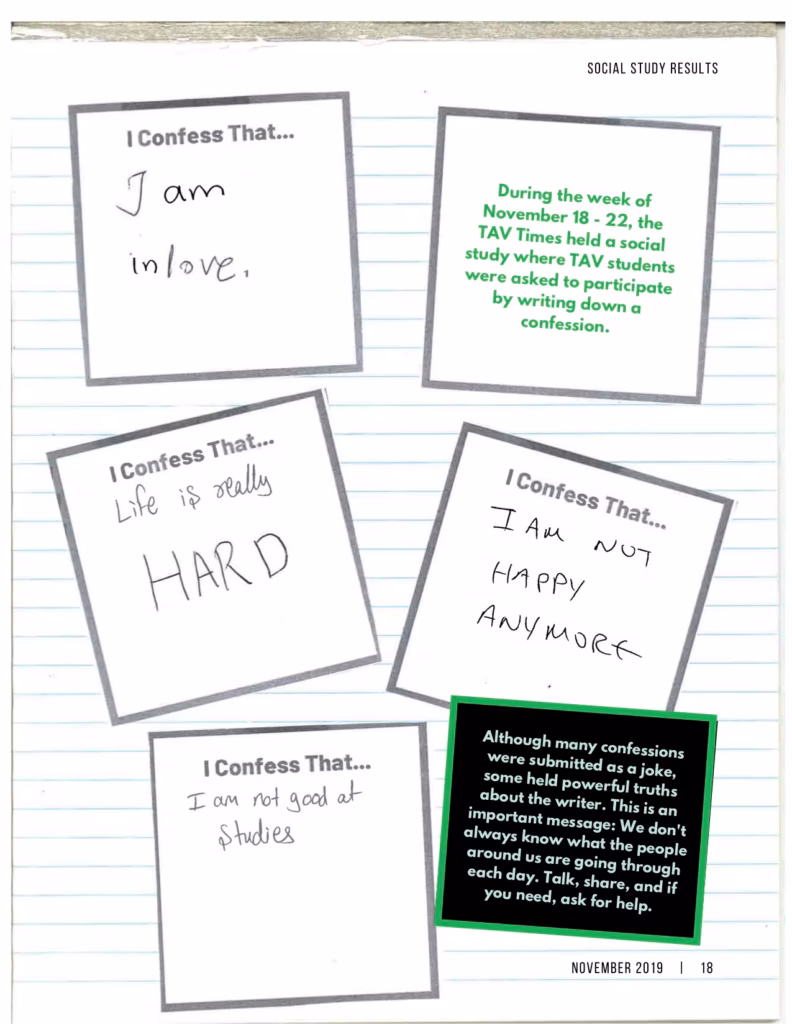 SOCIAL STUDY RESULTS
I Confess That...
I am
in love.
During the week of
November 18 - 22, the
TAV Times held a social
study where TAV students
were asked to participate
by writing down a
confession.
I Confess That...
Life is really
HARD
I Confess That...
I AM NOT
HAPPY
ANYMORE
I Confess That...
I am not good at
Studies
Although many confessions
were submitted as a joke,
some held powerful truths
about the writer. This is an
important message: We don't
always know what the people
around us are going through
each day. Talk, share, and if
you need, ask for help.
NOVEMBER 2019 | 18